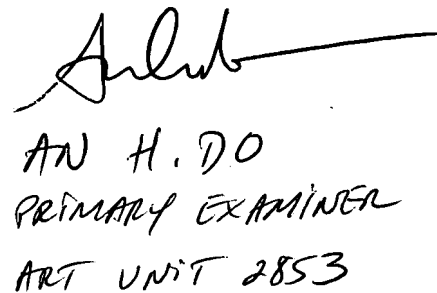 AN H. DO
PRIMARY EXAMINER
ART UNIT 2853